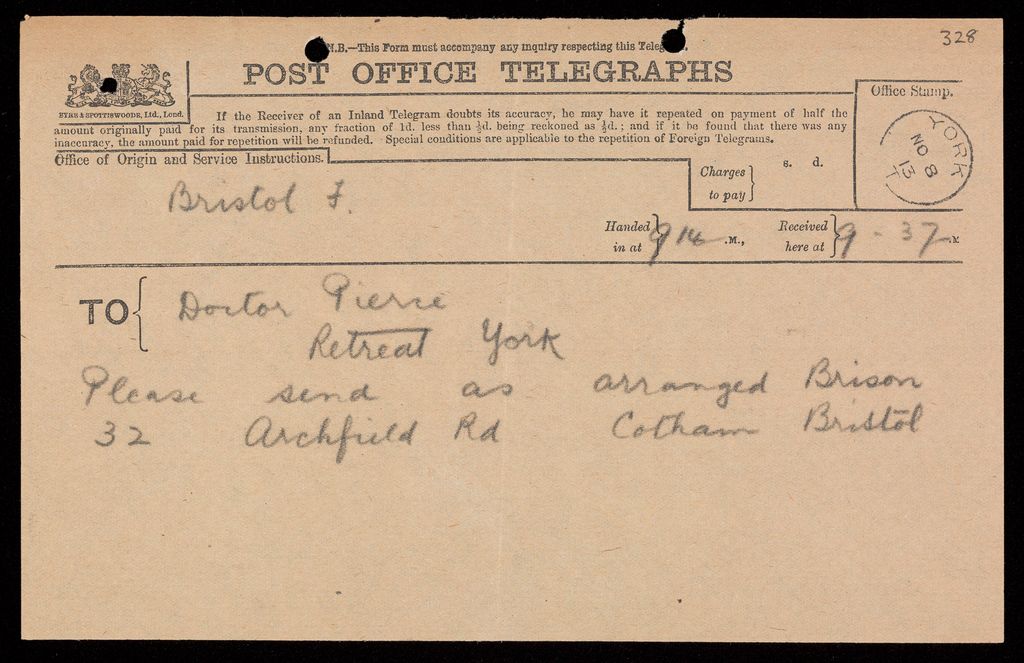 328
N.B.—This Form must accompany any inquiry respecting this Teleg
POST OFFICE TELEGRAPHS
EYRE & SPOTTISWOODE, Ltd., Lond.
If the Receiver of an Inland Telegram doubts its accuracy, he may have it repeated on payment of half the
amount originally paid for its transmission, any fraction of 1d. less than ½d. being reckoned as ½d.; and if it be found that there was any
inaccuracy, the amount paid for repetition will be refunded. Special conditions are applicable to the repetition of Foreign Telegrams.
Office Stamp.
YORK
NO 8
13
T
Office of Origin and Service Instructions.
Charges
to pay
s. d.
Bristol F.
Handed
in at
9 14 .M.,
Received
here at
9 - 37 .M
TO
Doctor Pierce
Retreat York
Please send as arranged Brison
32 Archfield Rd Cotham Bristol